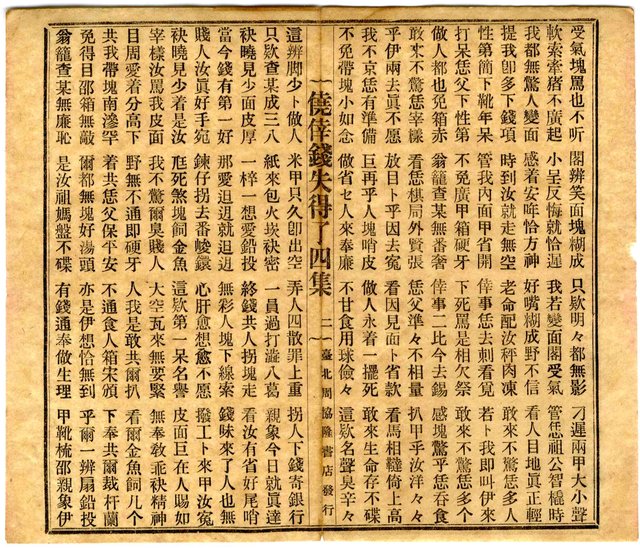 受氣塊罵也不听 閣辨笑面塊糊成 只欵明々都無影 刁遲兩甲大小聲
軟索牽猪不廣起 小呈反悔就恰遲 我若變面閣受氣 管恁祖公智橇時
我都無驚人變面 感着安哖恰方神 好嘴糊成野不信 看人目地眞正輕
提我卽多下錢項 時到汝就走無空 老命配汝秤肉凍 敢來不驚恁多人
性第簡下靴年呆 管我內面甲省開 倖事恁去刺看覓 若卜我卽叫伊來
打呆恁父下性第 不免廣甲箱硬牙 下死罵是相欠祭 敢來不驚恁多个
做人都也免箱赤 翁籠查某無番奢 倖事二比今去錫 感塊驚乎恁吞食
敢來不驚恁宰樣 看恁棋局外賢張 恁父準々不相量 扒甲乎汝洋々々
乎伊兩去眞不愿 放目卜乎因去寃 看因見面卜省款 看馬相韃倚上高
我不京恁有準備 巨再乎人塊哨皮 做人永着一擺死 敢來生命存不碟
不免帶塊小如念 做省セ人來奉廉 不甘食用球儉々 這欵名聲臭辛々
僥倖錢失得了四集 二 臺北周協隆書店發行
這辨脚少卜做人 米甲只久卽出空 弄人四散罪上重 拐人下錢寄銀行
只欵查某成三八 紙來包火崁袂密 一員過打澁八葛 親象今日就眞達
袂曉見少面皮厚 一梓一想愛鉛投 終錢共人拐塊走 看汝有省好尾哨
當今錢有第一好 那愛迌迌就迌迌 無彩人塊下線索 錢味來了人也無
賤人汝眞好手宛 鍊仔拐去番峻鐶 心肝愈想愈不愿 撥工卜來甲汝寃
袂曉見少着是汝 尫死煞塊飼金魚 這欵第一呆名譽 皮面巨在人賜如
宰樣汝罵我皮面 我不驚爾臭賤人 大空瓦來無要緊 無奉敎乖袂精神
目周愛着分高下 野無不通卽硬牙 人我是敢共爾扒 看爾金魚飼几个
共我帶塊南滲罕 着共恁父保平安 不通食人箱宋頒 下奉共爾裁杆蘭
免得目邵箱無敵 爾都無塊好湯頭 亦是伊想恰無到 乎爾一辨扇鉛投
翁籠查某無廉恥 是汝祖媽盤不碟 有錢通奉做生理 甲靴梳邵親象伊